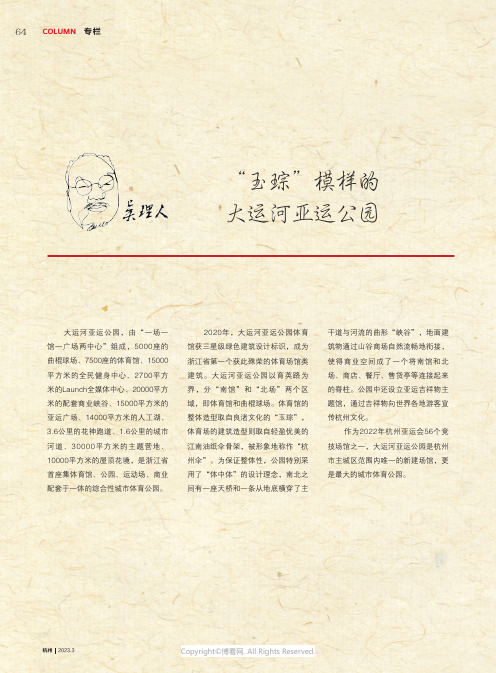 64 COLUMN 专栏
吴理人
“玉琮”模样的
大运河亚运公园
大运河亚运公园，由“一场一
馆一广场两中心”组成，5000座的
曲棍球场、7500座的体育馆、15000
平方米的全民健身中心、2700平方
米的Launch全媒体中心。20000平方
米的配套商业峡谷、15000平方米的
亚运广场、14000平方米的人工湖、
3.6公里的花神跑道、1.6公里的城市
河道、30000平方米的主题营地、
10000平方米的屋顶花境，是浙江省
首座集体育馆、公园、运动场、商业
配套于一体的综合性城市体育公园。
2020年，大运河亚运公园体育
馆获三星级绿色建筑设计标识，成为
浙江省第一个获此殊荣的体育场馆类
建筑。大运河亚运公园以育英路为
界，分“南馆”和“北场”两个区
域，即体育馆和曲棍球场。体育馆的
整体造型取自良渚文化的“玉琮”，
体育场的建筑造型则取自轻盈优美的
江南油纸伞骨架，被形象地称作“杭
州伞”。为保证整体性，公园特别采
用了“体中体”的设计理念，南北之
间有一座天桥和一条从地底横穿了主
干道与河流的曲形“峡谷”，地面建
筑物通过山谷商场自然流畅地衔接，
使得商业空间成了一个将南馆和北
场、商店、餐厅、售货亭等连接起来
的脊柱。公园中还设立亚运吉祥物主
题馆，通过吉祥物向世界各地游客宣
传杭州文化。
作为2022年杭州亚运会56个竞
技场馆之一，大运河亚运公园是杭州
市主城区范围内唯一的新建场馆，更
是最大的城市体育公园。
杭州 2023.3
Copyright©博看网. All Rights Reserved.